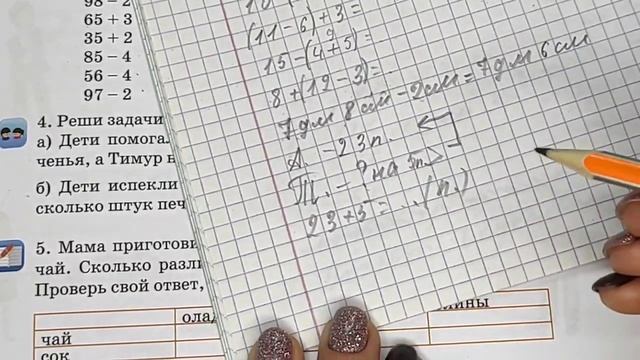 98 − 2
65 + 3
35 + 2
85 − 4
56 − 4
97 − 2
4. Реши задачи
а) Дети помога
ченья, а Тимур н
б) Дети испекли
сколько штук печ
5. Мама приготови
чай. Сколько разли
Проверь свой ответ,
олад
лины
чай
сок
(11 − 6) + 3 =
9
15 − (4 + 5) =
8 + (12 − 3) =
7 дм 8 см − 2 см = 7 дм 6 см
А. − 23 п.
Т. − ? на 5 п. >
23 + 5 = ... (п.)